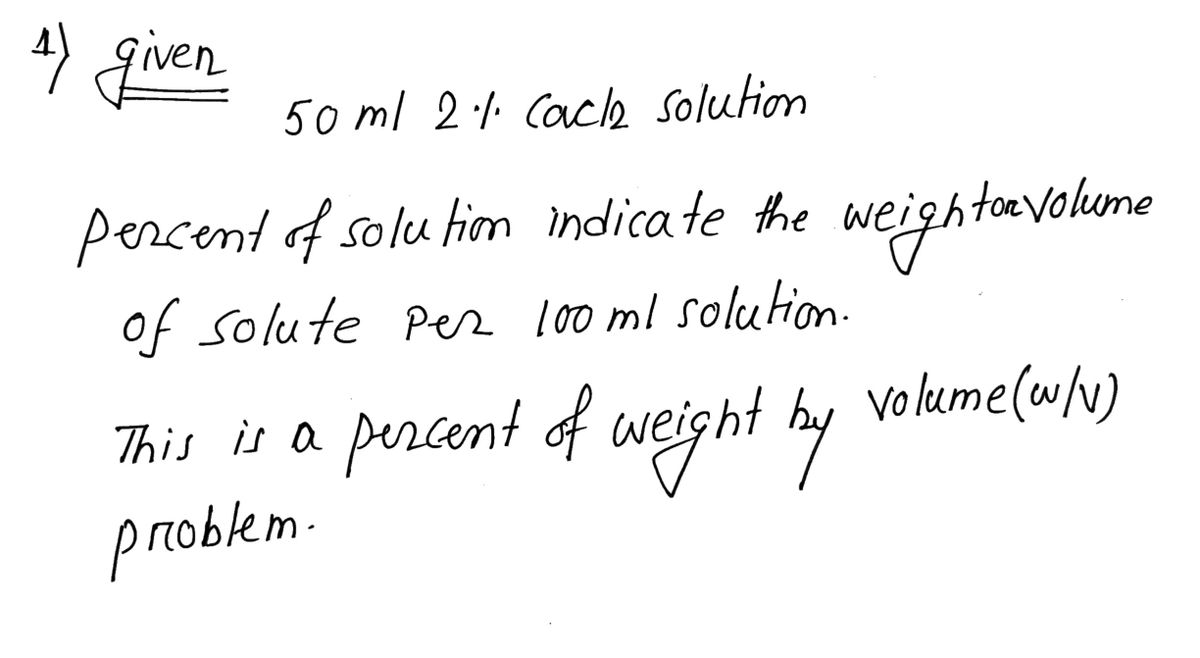 1) given
50 ml 2% Cacl2 solution
percent of solution indicate the weight or volume
of solute per 100 ml solution.
This is a percent of weight by volume (w/v)
problem.